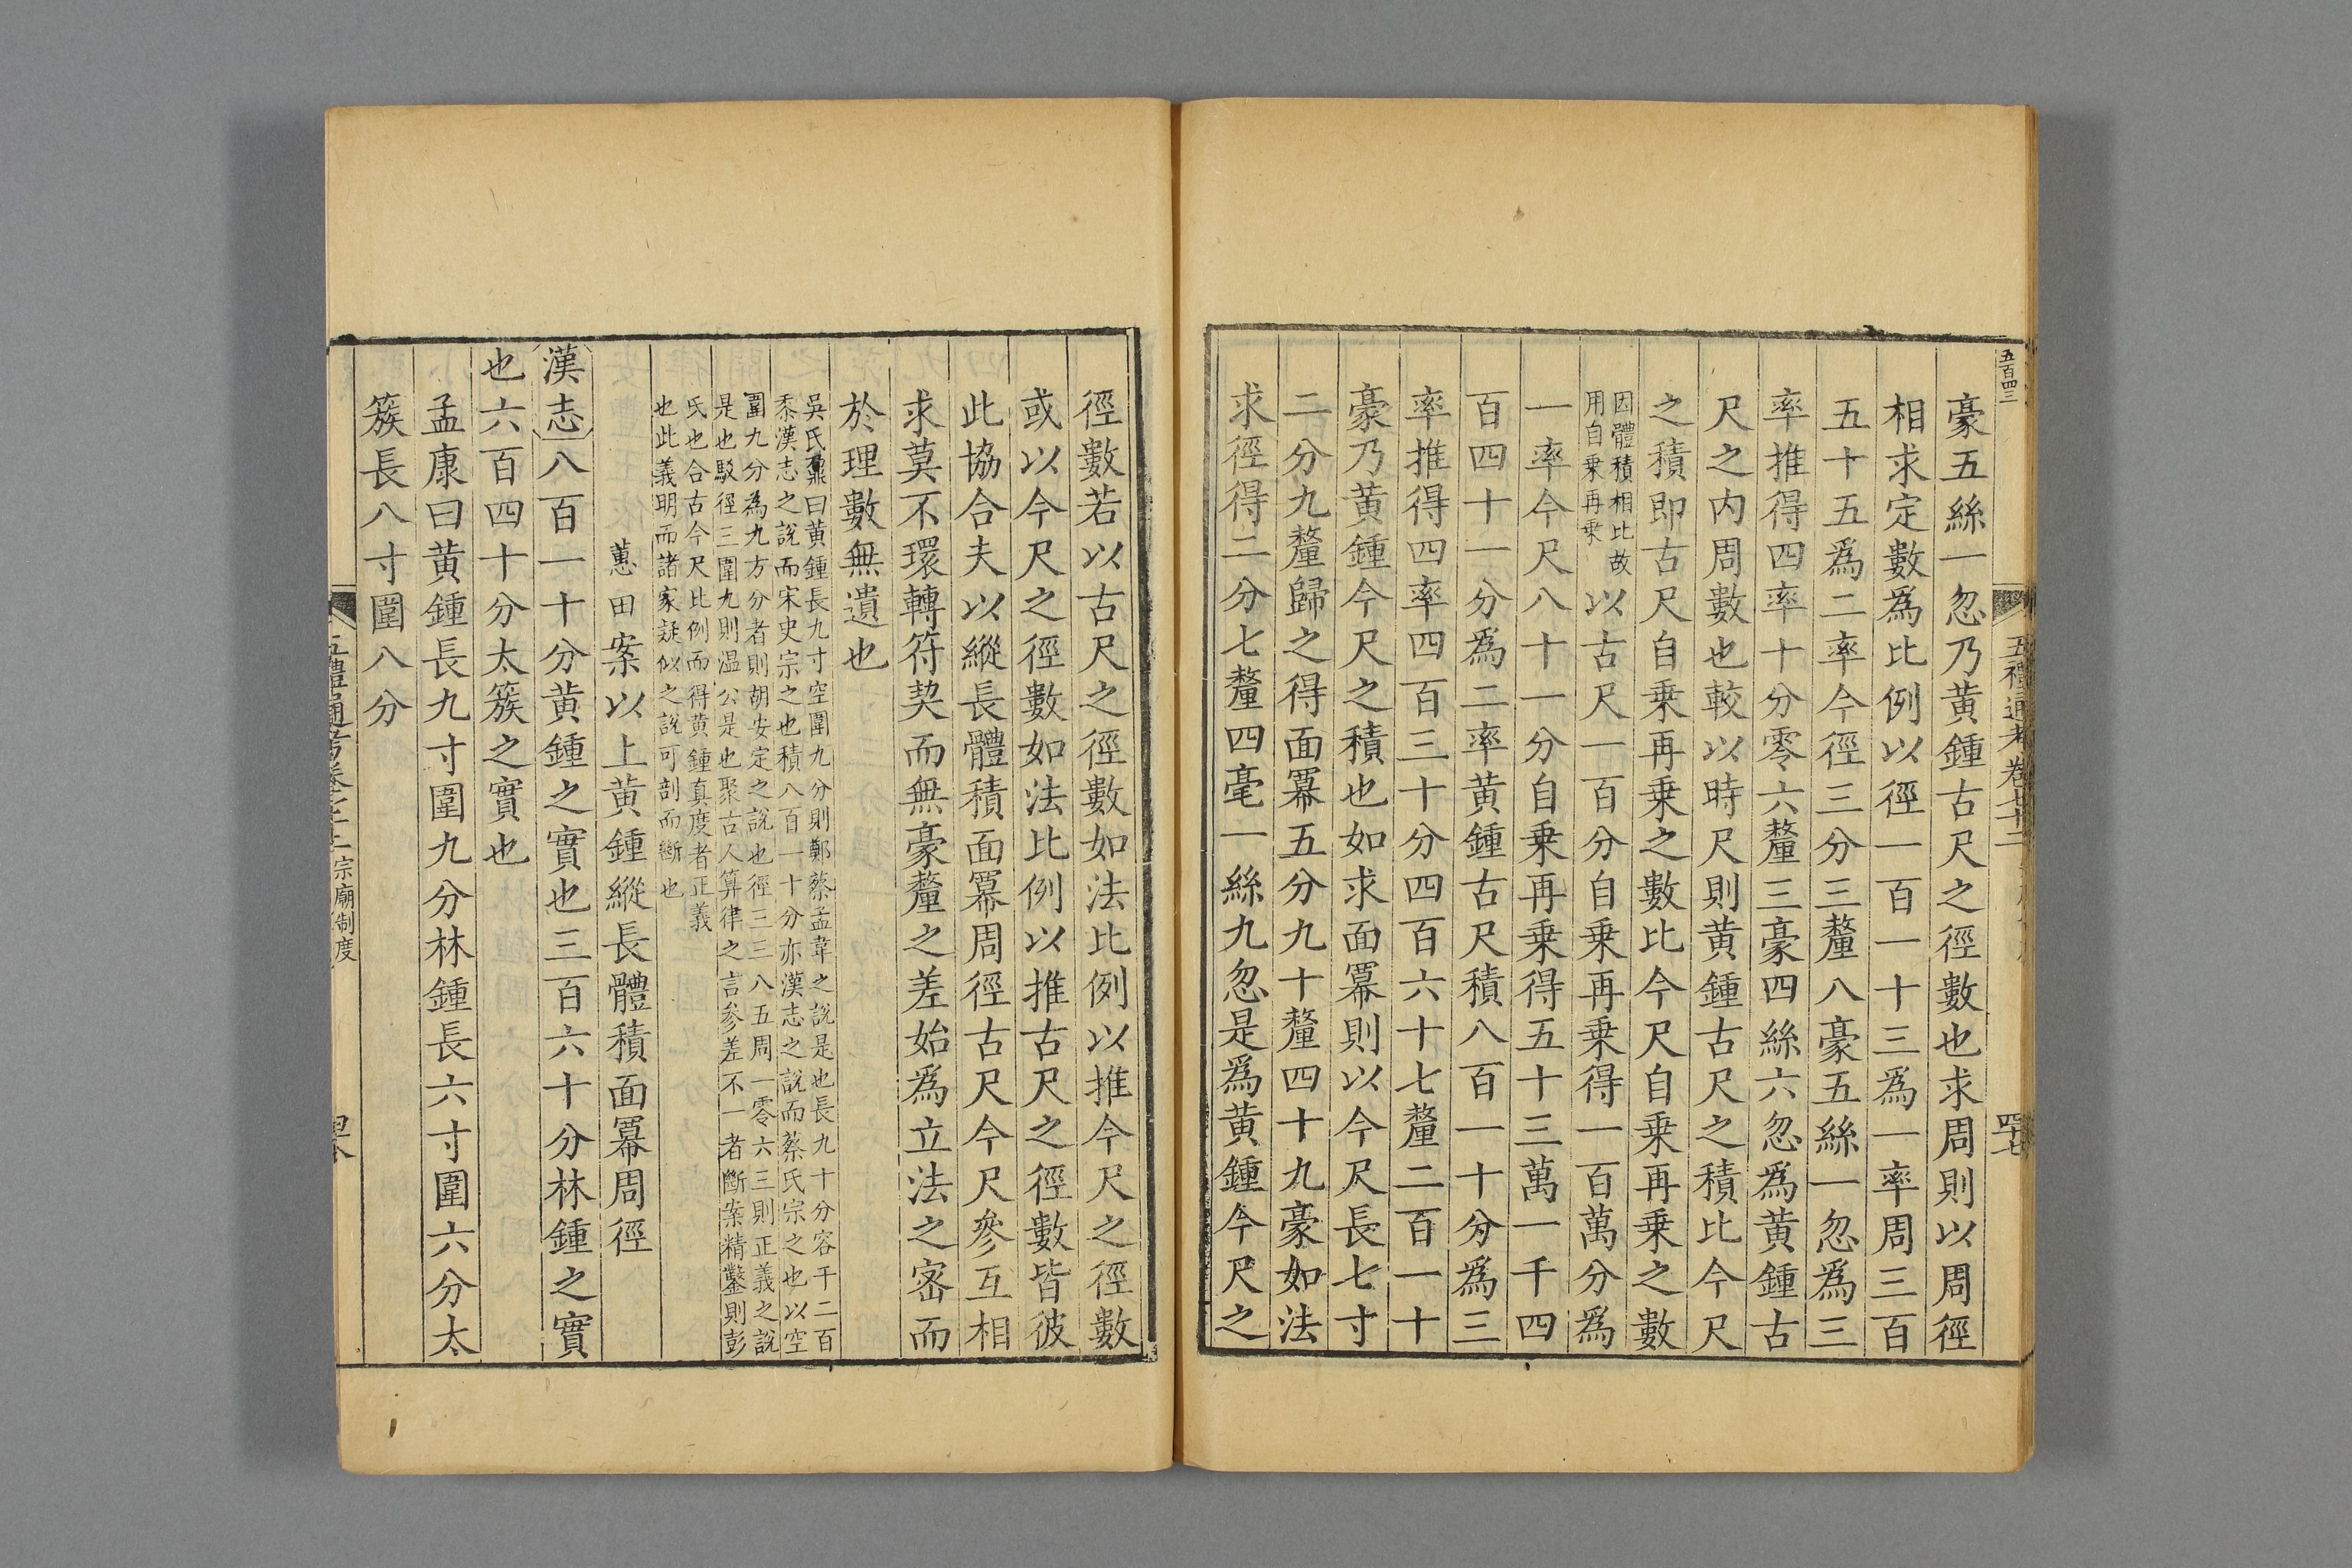 五百四三
五禮通考卷七十二
四十七
豪五絲一忽乃黄鍾古尺之徑數也求周則以周徑
相求定數爲比例以徑一百一十三爲一率周三百
五十五爲二率今徑三分三釐八豪五絲一忽爲三
率推得四率十分零六釐三豪四絲六忽爲黄鍾古
尺之内周數也較以時尺則黄鍾古尺之積比今尺
之積即古尺自乗再乗之數比今尺自乗再乗之數
因體積相比故
用自乗再乗
以古尺一百分自乗再乗得一百萬分爲
一率今尺八十一分自乗再乗得五十三萬一千四
百四十一分爲二率黄鍾古尺積八百一十分爲三
率推得四率四百三十分四百六十七釐二百一十
豪乃黄鍾今尺之積也如求面冪則以今尺長七寸
二分九釐歸之得面冪五分九十釐四十九豪如法
求徑得二分七釐四毫一絲九忽是爲黄鍾今尺之
徑數若以古尺之徑數如法比例以推今尺之徑數
或以今尺之徑數如法比例以推古尺之徑數皆彼
此協合夫以縱長體積面冪周徑古尺今尺參互相
求莫不環轉符契而無豪釐之差始爲立法之宻而
於理數無遺也
吳氏鼐曰黄鍾長九寸空圍九分則鄭蔡孟韋之說是也長九十分容千二百
黍漢志之說而宋史宗之也積八百一十分亦漢志之說而蔡氏宗之也以空
圍九分為九方分者則胡安定之說也徑三三八五周一零六三則正義之說
是也駁徑三圍九則温公是也聚古人算律之言参差不一者斷案精鑿則彭
氏也合古今尺比例而得黄鍾真度者正義
也此義明而諸家疑似之說可剖而斷也
蕙田案以上黄鍾縱長體積面冪周徑
漢志八百一十分黄鍾之實也三百六十分林鍾之實
也六百四十分太簇之實也
孟康曰黄鍾長九寸圍九分林鍾長六寸圍六分太
簇長八寸圍八分
五禮通考卷七十二 宗廟制度